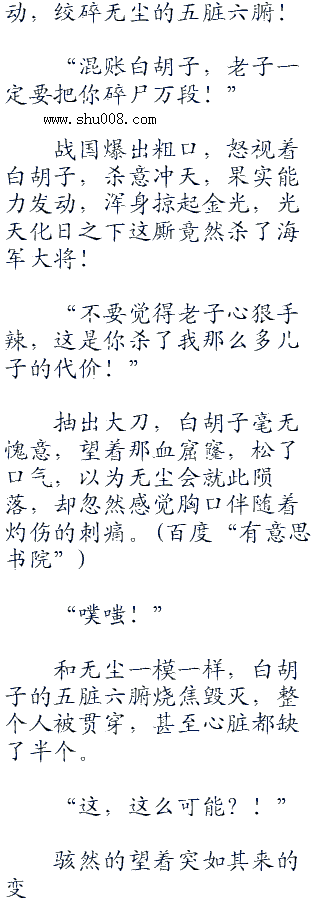 动，绞碎无尘的五脏六腑！
“混账白胡子，老子一
定要把你碎尸万段！”
www.shu008.com
战国爆出粗口，怒视着
白胡子，杀意冲天，果实能
力发动，浑身掠起金光，光
天化日之下这厮竟然杀了海
军大将！
“不要觉得老子心狠手
辣，这是你杀了我那么多儿
子的代价！”
抽出大刀，白胡子毫无
愧意，望着那血窟窿，松了
口气，以为无尘会就此陨
落，却忽然感觉胸口伴随着
灼伤的刺痛。(百度“有意思
书院”)
“噗嗤！”
和无尘一模一样，白胡
子的五脏六腑烧焦毁灭，整
个人被贯穿，甚至心脏都缺
了半个。
“这，这么可能？！”
骇然的望着突如其来的
变